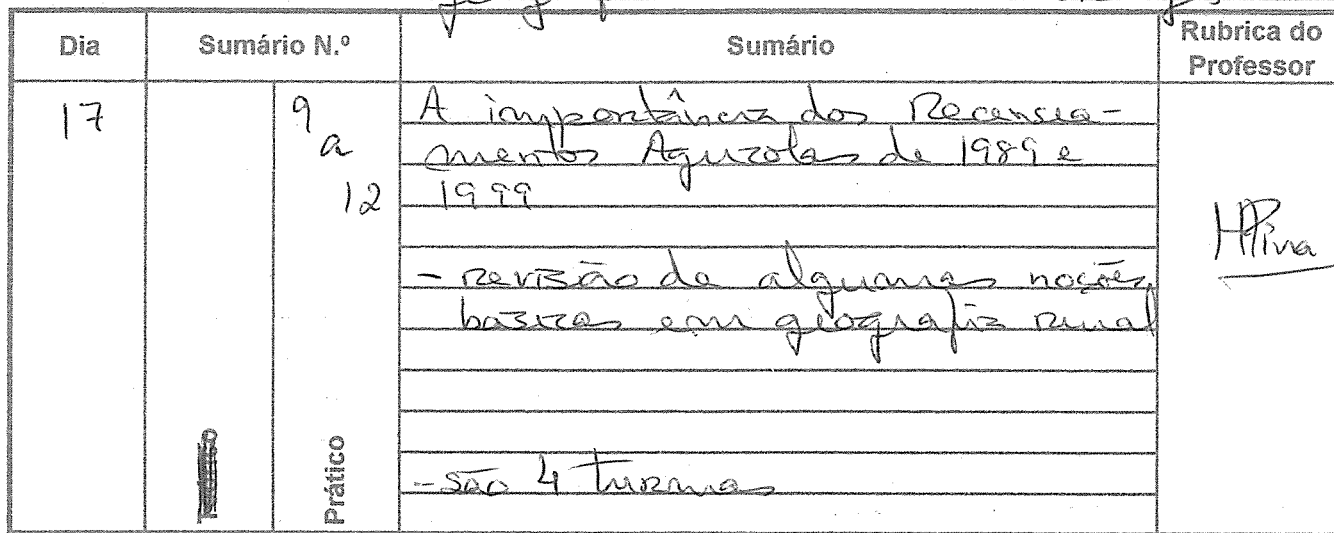 Dia Sumário N.º Sumário Rubrica do Professor
17
9
a
12
A importância dos Recensea-
mentos Agrícolas de 1989 e
1999
- revisão de algumas noções
básicas em geografia rural
- são 4 turmas
Prático
HPina